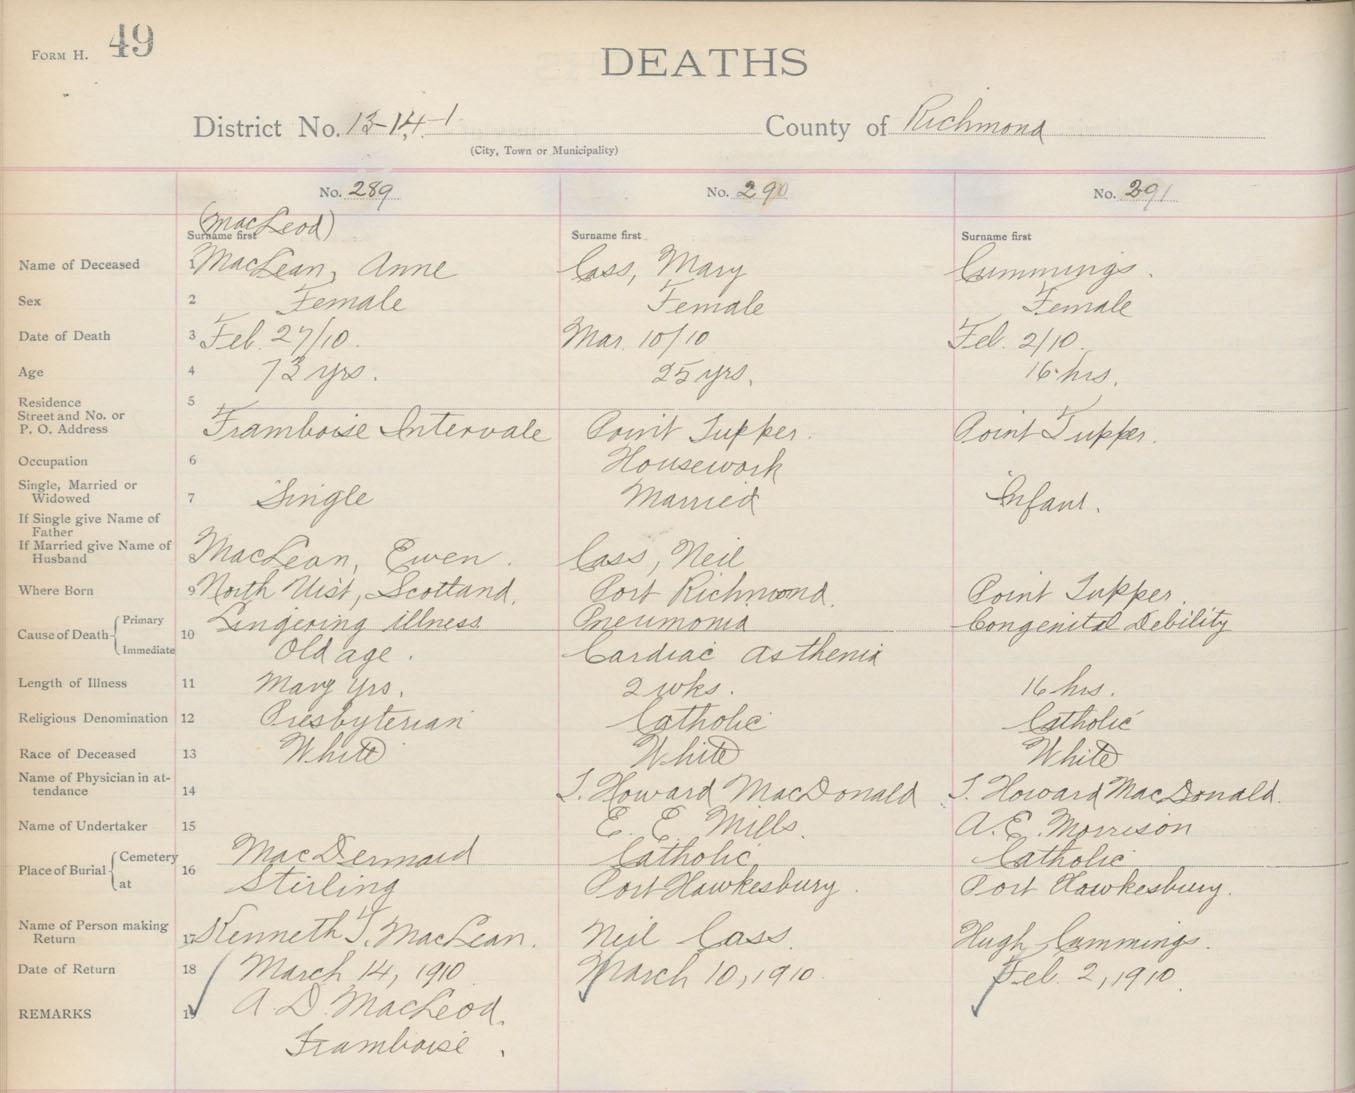 FORM H. 49
DEATHS
District No. 13-14-1 County of Richmond
(City, Town or Municipality)
No. 289 No. 290 No. 291
(MacLeod)
Surname first Surname first Surname first
Name of Deceased 1 MacLean, Anne Cass, Mary Cummings.
Sex 2 Female Female Female
Date of Death 3 Feb. 27/10. Mar. 10/10 Feb. 2/10.
Age 4 73 yrs. 25 yrs. 16 hrs.
Residence 5
Street and No. or
P. O. Address Framboise Intervale Point Tupper. Point Tupper.
Occupation 6 Housework
Single, Married or
Widowed 7 Single Married Infant.
If Single give Name of
Father
If Married give Name of
Husband 8 MacLean, Ewen. Cass, Neil
Where Born 9 North Uist, Scotland. Port Richmond. Point Tupper.
Cause of Death Primary Lingering illness Pneumonia Congenital Debility
10
Immediate Old age. Cardiac asthenia
Length of Illness 11 Many yrs. 2 wks. 16 hrs.
Religious Denomination 12 Presbyterian Catholic Catholic
Race of Deceased 13 White White White
Name of Physician in at-
tendance 14 J. Howard MacDonald J. Howard MacDonald.
Name of Undertaker 15 E. E. Mills. A. E. Morrison
Place of Burial Cemetery MacDermaid Catholic, Catholic
16
at Stirling Port Hawkesbury. Port Hawkesbury.
Name of Person making
Return 17 Kenneth J. MacLean. Neil Cass. Hugh Cummings.
Date of Return 18 March 14, 1910 March 10, 1910. Feb. 2, 1910.
REMARKS 19 A D. MacLeod.
Framboise.